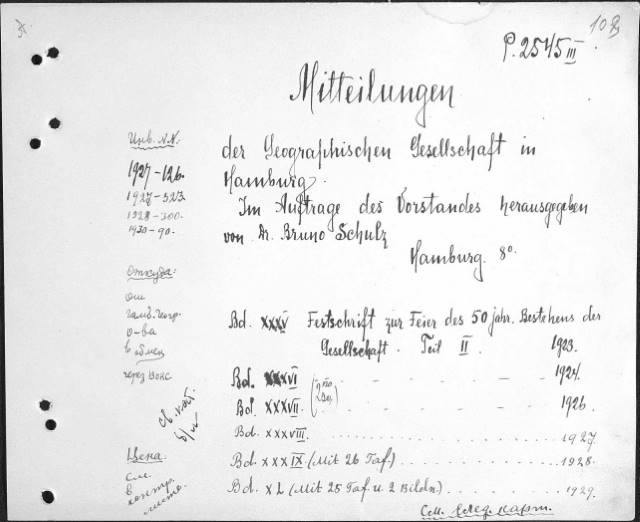 P. 2545 III
Mitteilungen
der Geographischen Gesellschaft in
Hamburg.
Im Auftrage des Vorstandes herausgegeben
von Dr. Bruno Schulz
Hamburg. 8º.
Инв. №№.
1927-126.
1927-323.
1928-300.
1930-90.
Откуда:
от
гамб. геогр.
о-ва
в обмен
через Вокс
св. кат.
б/н
Цена:
см.
в контр.
листе.
Bd. XXXV Festschrift zur Feier des 50 jähr. Bestehens der
Gesellschaft. Teil II. 1923.
Bd. XXXVI - - - - 1924.
Bd. XXXVII - - - - 1926.
Bd. XXXVIII. 1927.
Bd. XXXIX. (Mit 26 Taf.) 1928.
Bd. XL (Mit 25 Taf. u. 2 Bildn.) 1929.
См. след. карт.